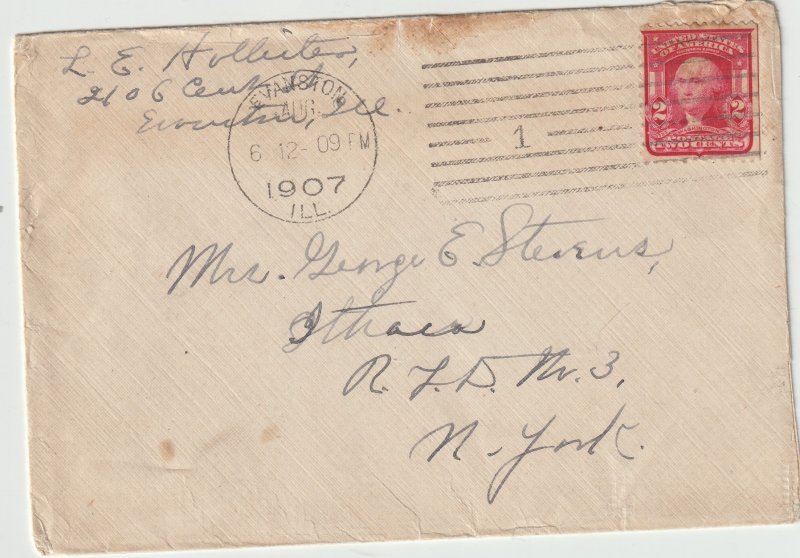 L. E. Hollister,
2106 Central
Evanston, Ill.
EVANSTON
AUG.
6 12-09 PM
1907
ILL.
1
UNITED STATES
OF AMERICA
2 2
TWO CENTS
Mrs. George E. Stevens,
Ithaca
R. F. D. Nr. 3,
N. York.